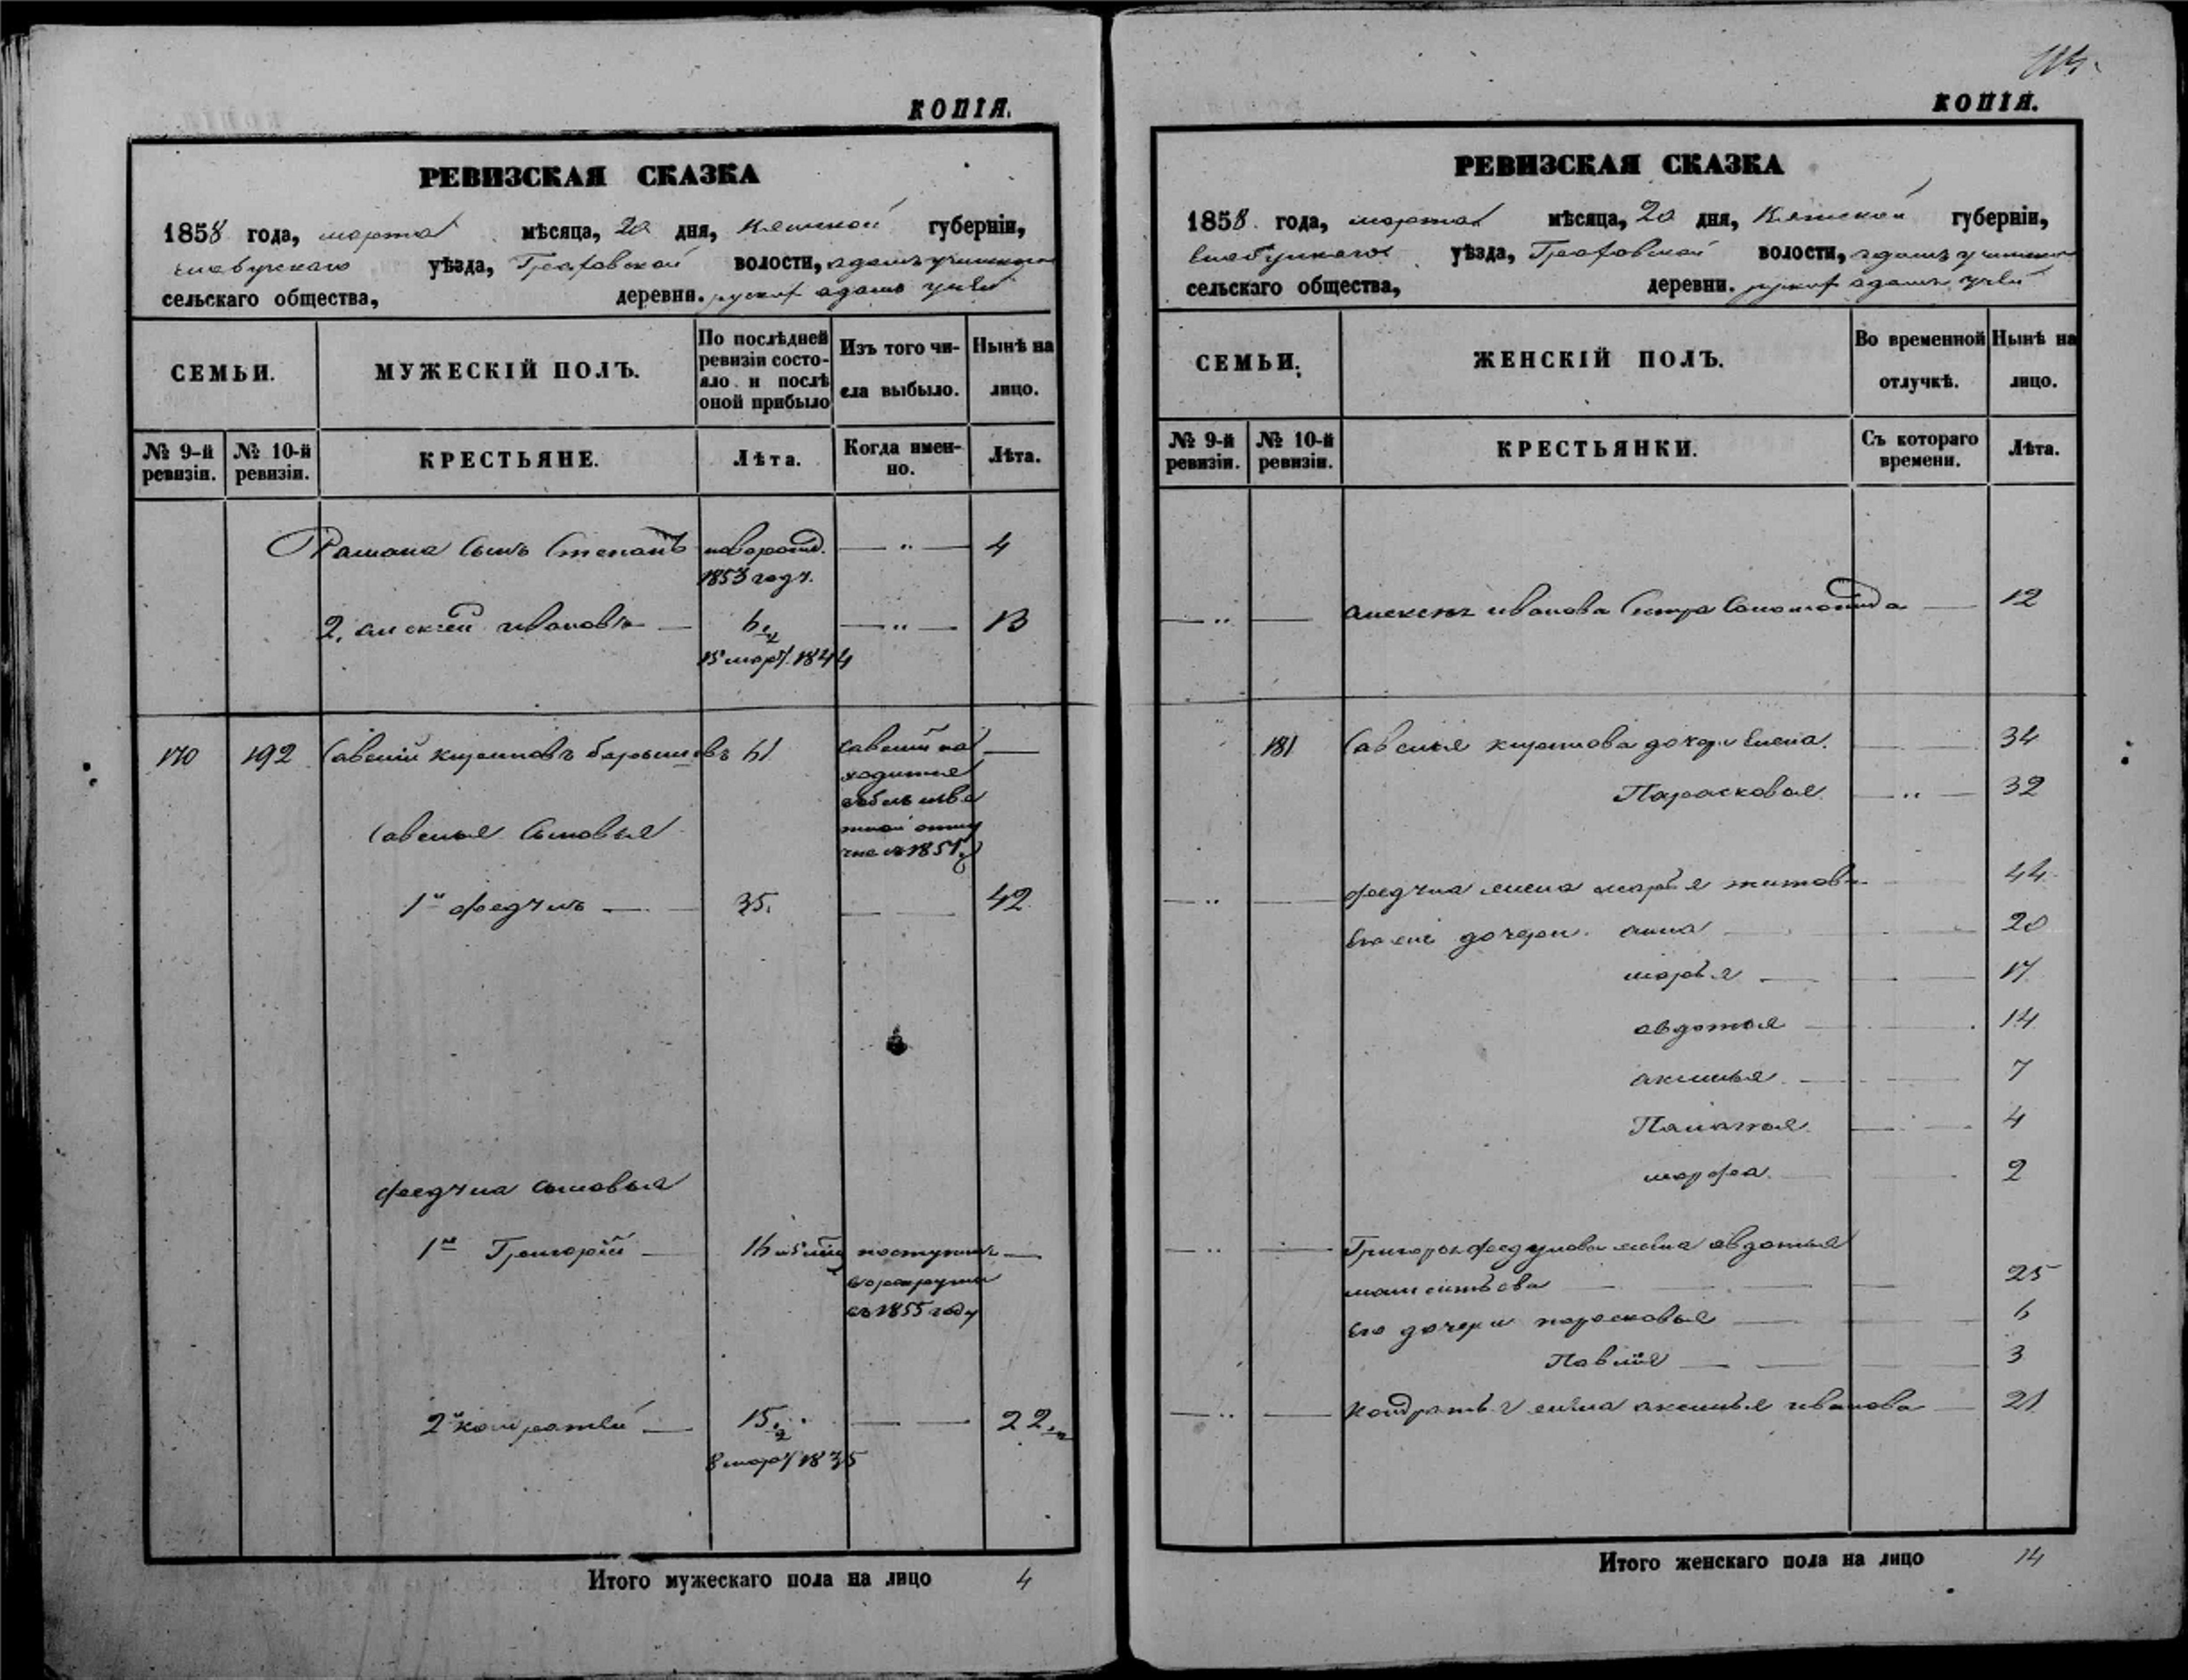 КОПІЯ.
РЕВИЗСКАЯ СКАЗКА
1858 года, марта мѣсяца, 20 дня, Вятской губерніи,
Елабужскаго уѣзда, Граховской волости,
сельскаго общества, деревни.
СЕМЬИ. МУЖЕСКІЙ ПОЛЪ. По послѣдней ревизіи состояло и послѣ оной прибыло Изъ того числа выбыло. Нынѣ на лицо.
№ 9-й ревизіи. № 10-й ревизіи. КРЕСТЬЯНЕ. Лѣта. Когда именно. Лѣта.
Рамана сынъ Степанъ новорожд. — " — 4
1853 году.
2. алексей ивановъ — 6 — " — 13
15 мар. 1844
170 192 Савелій 61 савелий на —
ходится
Савелья сыновья
1й федулъ — 35. — — 42
федула сыновья
1й Григорій — 16 поступилъ —
в рекруты
въ 1855 году
2й кондратей — 15 — — 22
8 мар. 1835
Итого мужескаго пола на лицо 4
КОПІЯ.
РЕВИЗСКАЯ СКАЗКА
1858 года, марта мѣсяца, 20 дня, Вятской губерніи,
Елабужскаго уѣзда, Граховской волости,
сельскаго общества, деревни.
СЕМЬИ. ЖЕНСКІЙ ПОЛЪ. Во временной отлучкѣ. Нынѣ на лицо.
№ 9-й ревизіи. № 10-й ревизіи. КРЕСТЬЯНКИ. Съ котораго времени. Лѣта.
— " — — иванова сестра — 12
181 Савелья дочери елена. — — 34
Парасковья — " — 32
— " — — федула жена марья титова — 44
его дочери. анна — — 20
марья — — 17
авдотья — — 14
аксинья — — 7
Палагья — — 4
марфа. — — 2
— " — — Григорья федулова жена авдотья
— — — 25
Его дочери парасковья — — 6
Павлия — — — 3
— " — — Кондратья жена аксинья иванова — 21
Итого женскаго пола на лицо 14